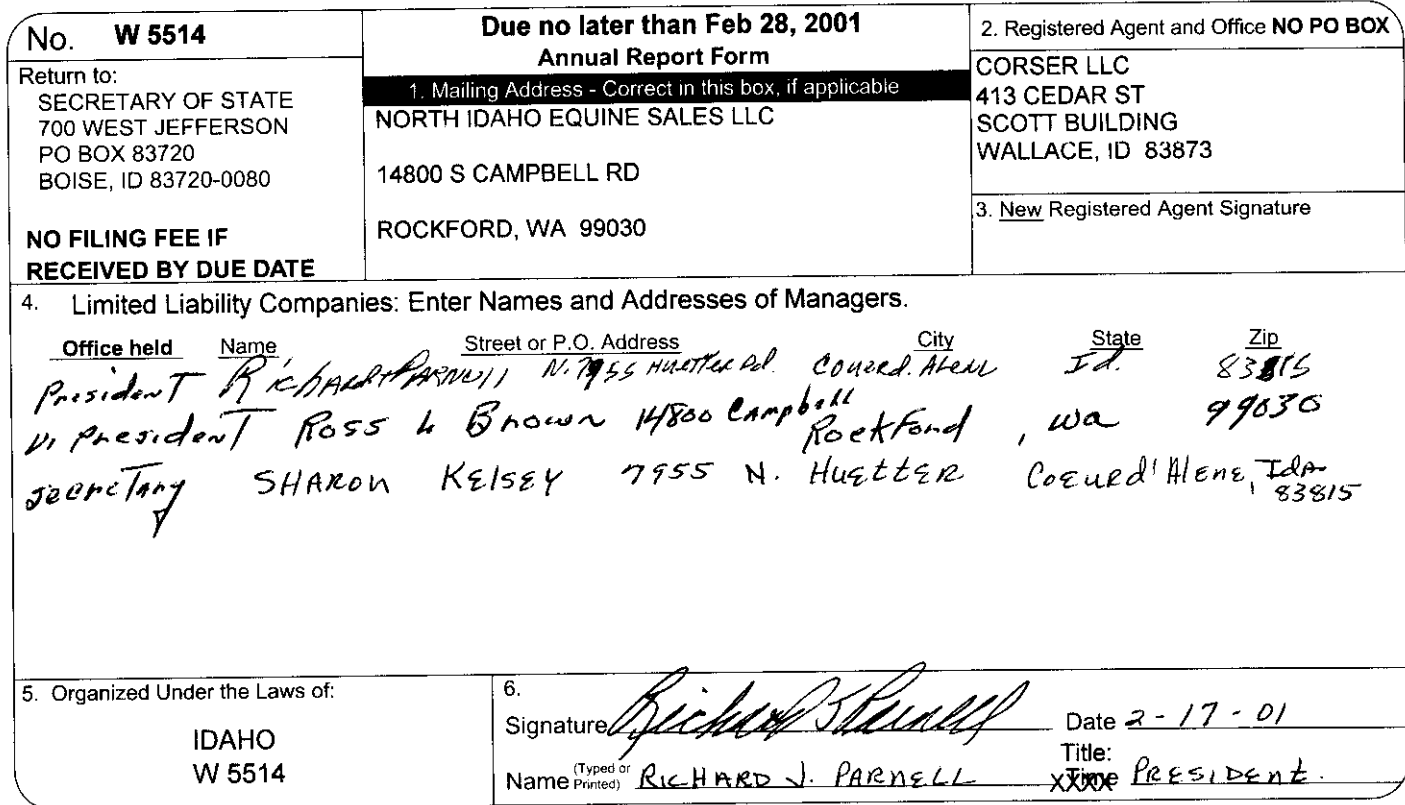 No. W 5514
Return to:
SECRETARY OF STATE
700 WEST JEFFERSON
PO BOX 83720
BOISE, ID 83720-0080
NO FILING FEE IF
RECEIVED BY DUE DATE
Due no later than Feb 28, 2001
Annual Report Form
1. Mailing Address - Correct in this box, if applicable
NORTH IDAHO EQUINE SALES LLC
14800 S CAMPBELL RD
ROCKFORD, WA 99030
2. Registered Agent and Office NO PO BOX
CORSER LLC
413 CEDAR ST
SCOTT BUILDING
WALLACE, ID 83873
3. New Registered Agent Signature
4. Limited Liability Companies: Enter Names and Addresses of Managers.
Office held Name Street or P.O. Address City State Zip
President Richard PARNell N. 7955 Huetter Rd. Id. 83815
Vi President Ross L Brown 14800 Campbell Rockford, wa 99030
Secretary SHARON KELSEY 7955 N. HUETTER COEURd'ALENE, Ida 83815
5. Organized Under the Laws of:
IDAHO
W 5514
6.
Signature Richard J Parnell Date 2-17-01
Name (Typed or Printed) RICHARD J. PARNELL Title: PRESIDENT.